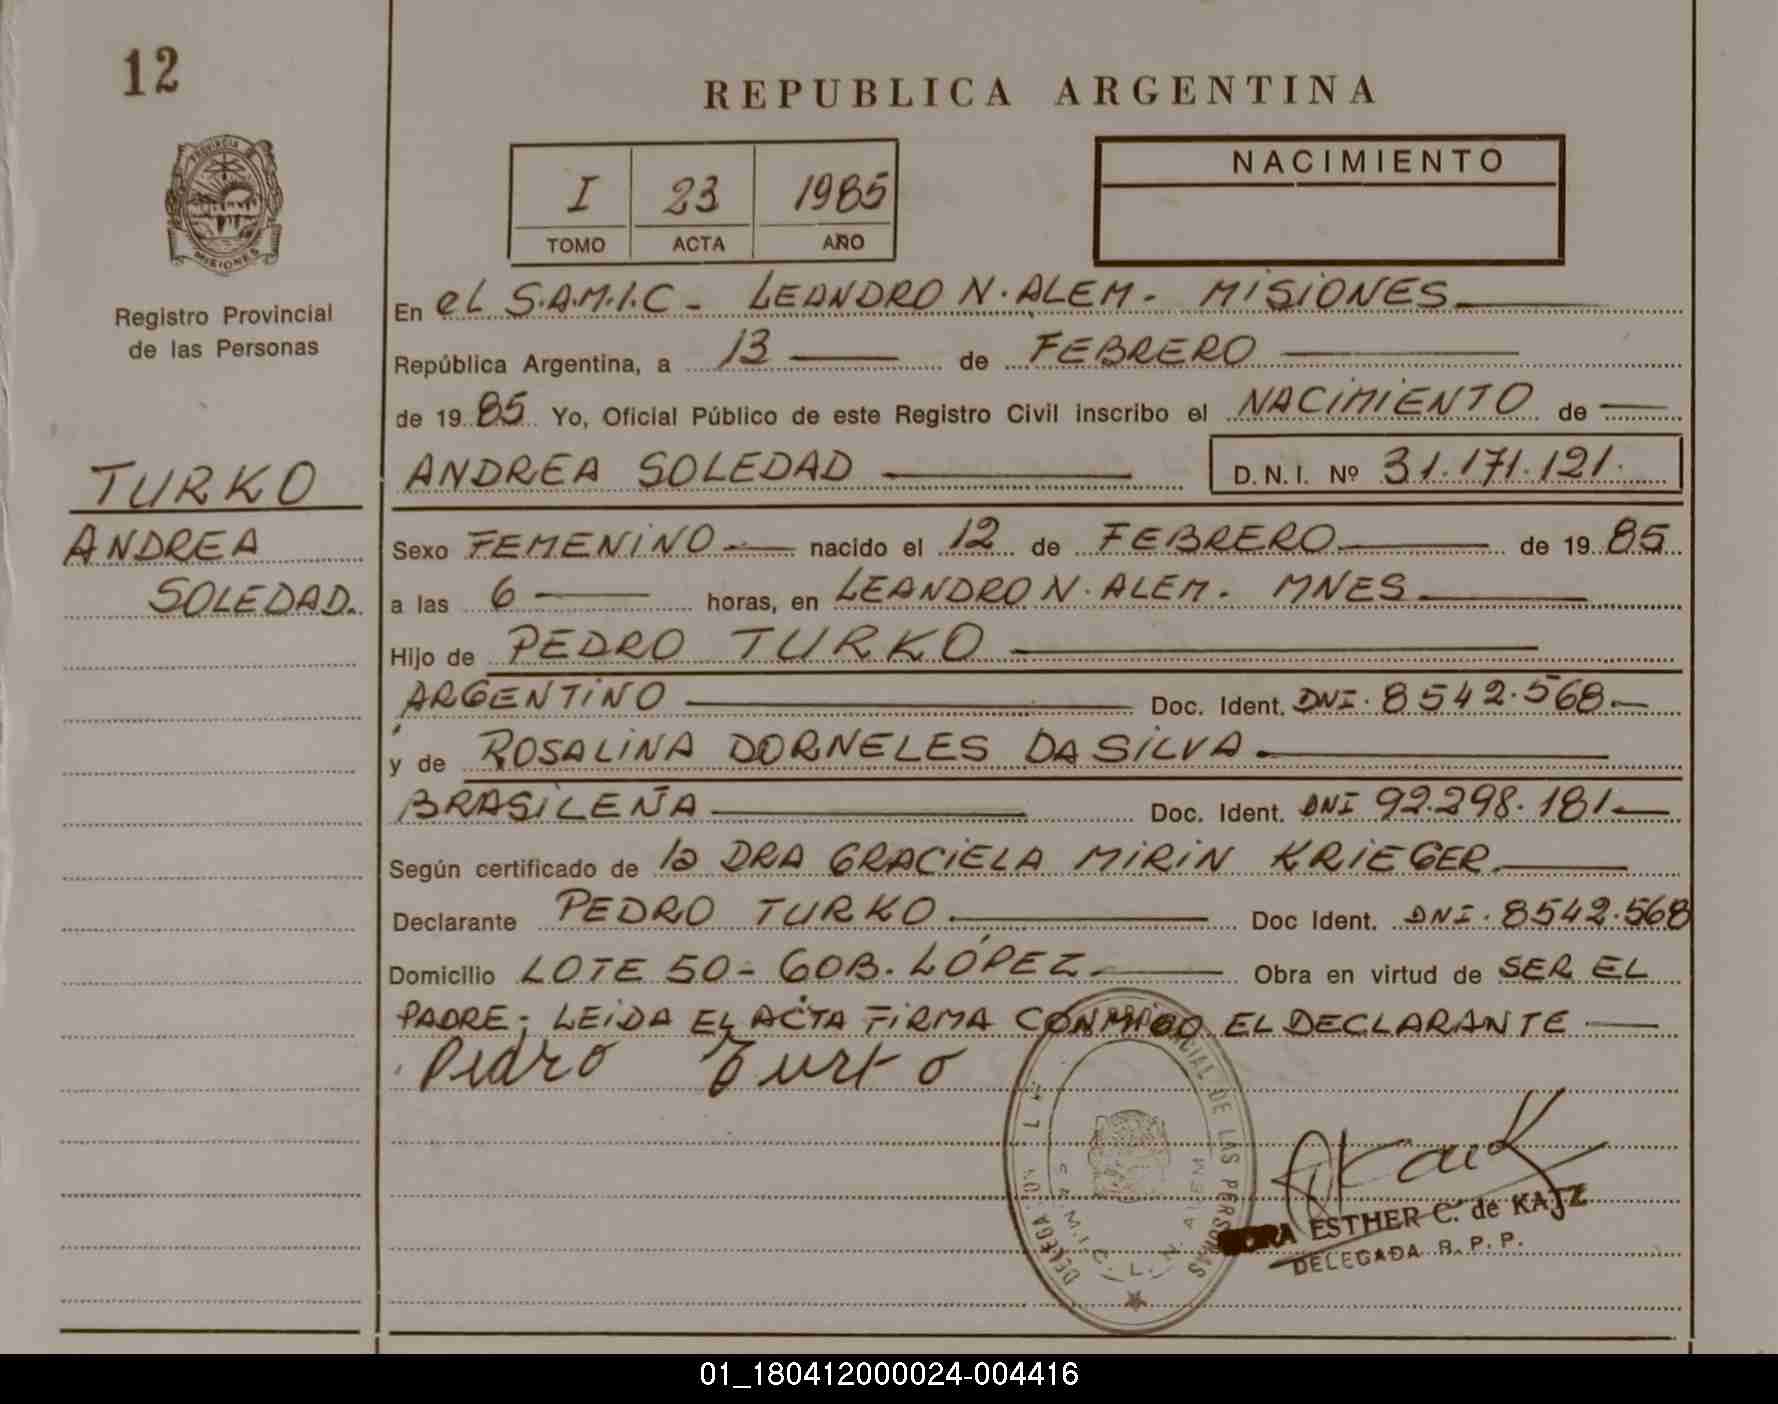 12
REPUBLICA ARGENTINA
PROVINCIA D
MISIONES
Registro Provincial
de las Personas
I 23 1985
TOMO ACTA AÑO
NACIMIENTO
En eL S.A.M.I.C - LEANDRO N. ALEM - MISIONES
República Argentina, a 13 de FEBRERO
de 19 85 Yo, Oficial Público de este Registro Civil inscribo el NACIMIENTO de
TURKO
ANDREA
SOLEDAD.
ANDREA SOLEDAD D.N.I. Nº 31.171.121.
Sexo FEMENINO nacido el 12 de FEBRERO de 19 85
a las 6 horas, en LEANDRO N. ALEM. MNES
Hijo de PEDRO TURKO
ARGENTINO Doc. Ident. DNI. 8542.568
y de ROSALINA DORNELES DA SILVA
BRASILEÑA Doc. Ident. DNI 92.298.181
Según certificado de la DRA GRACIELA MIRIN KRIEGER
Declarante PEDRO TURKO Doc Ident. DNI. 8542.568
Domicilio LOTE 50 - GOB. LÓPEZ Obra en virtud de SER EL
PADRE; LEIDA EL ACTA FIRMA CONMIGO EL DECLARANTE
Pedro Turko
DE LAS PERSONAS
S.A.M.I.C. L. N. ALEM
ESTHER C. de KATZ
DELEGADA R. P. P.
01_180412000024-004416